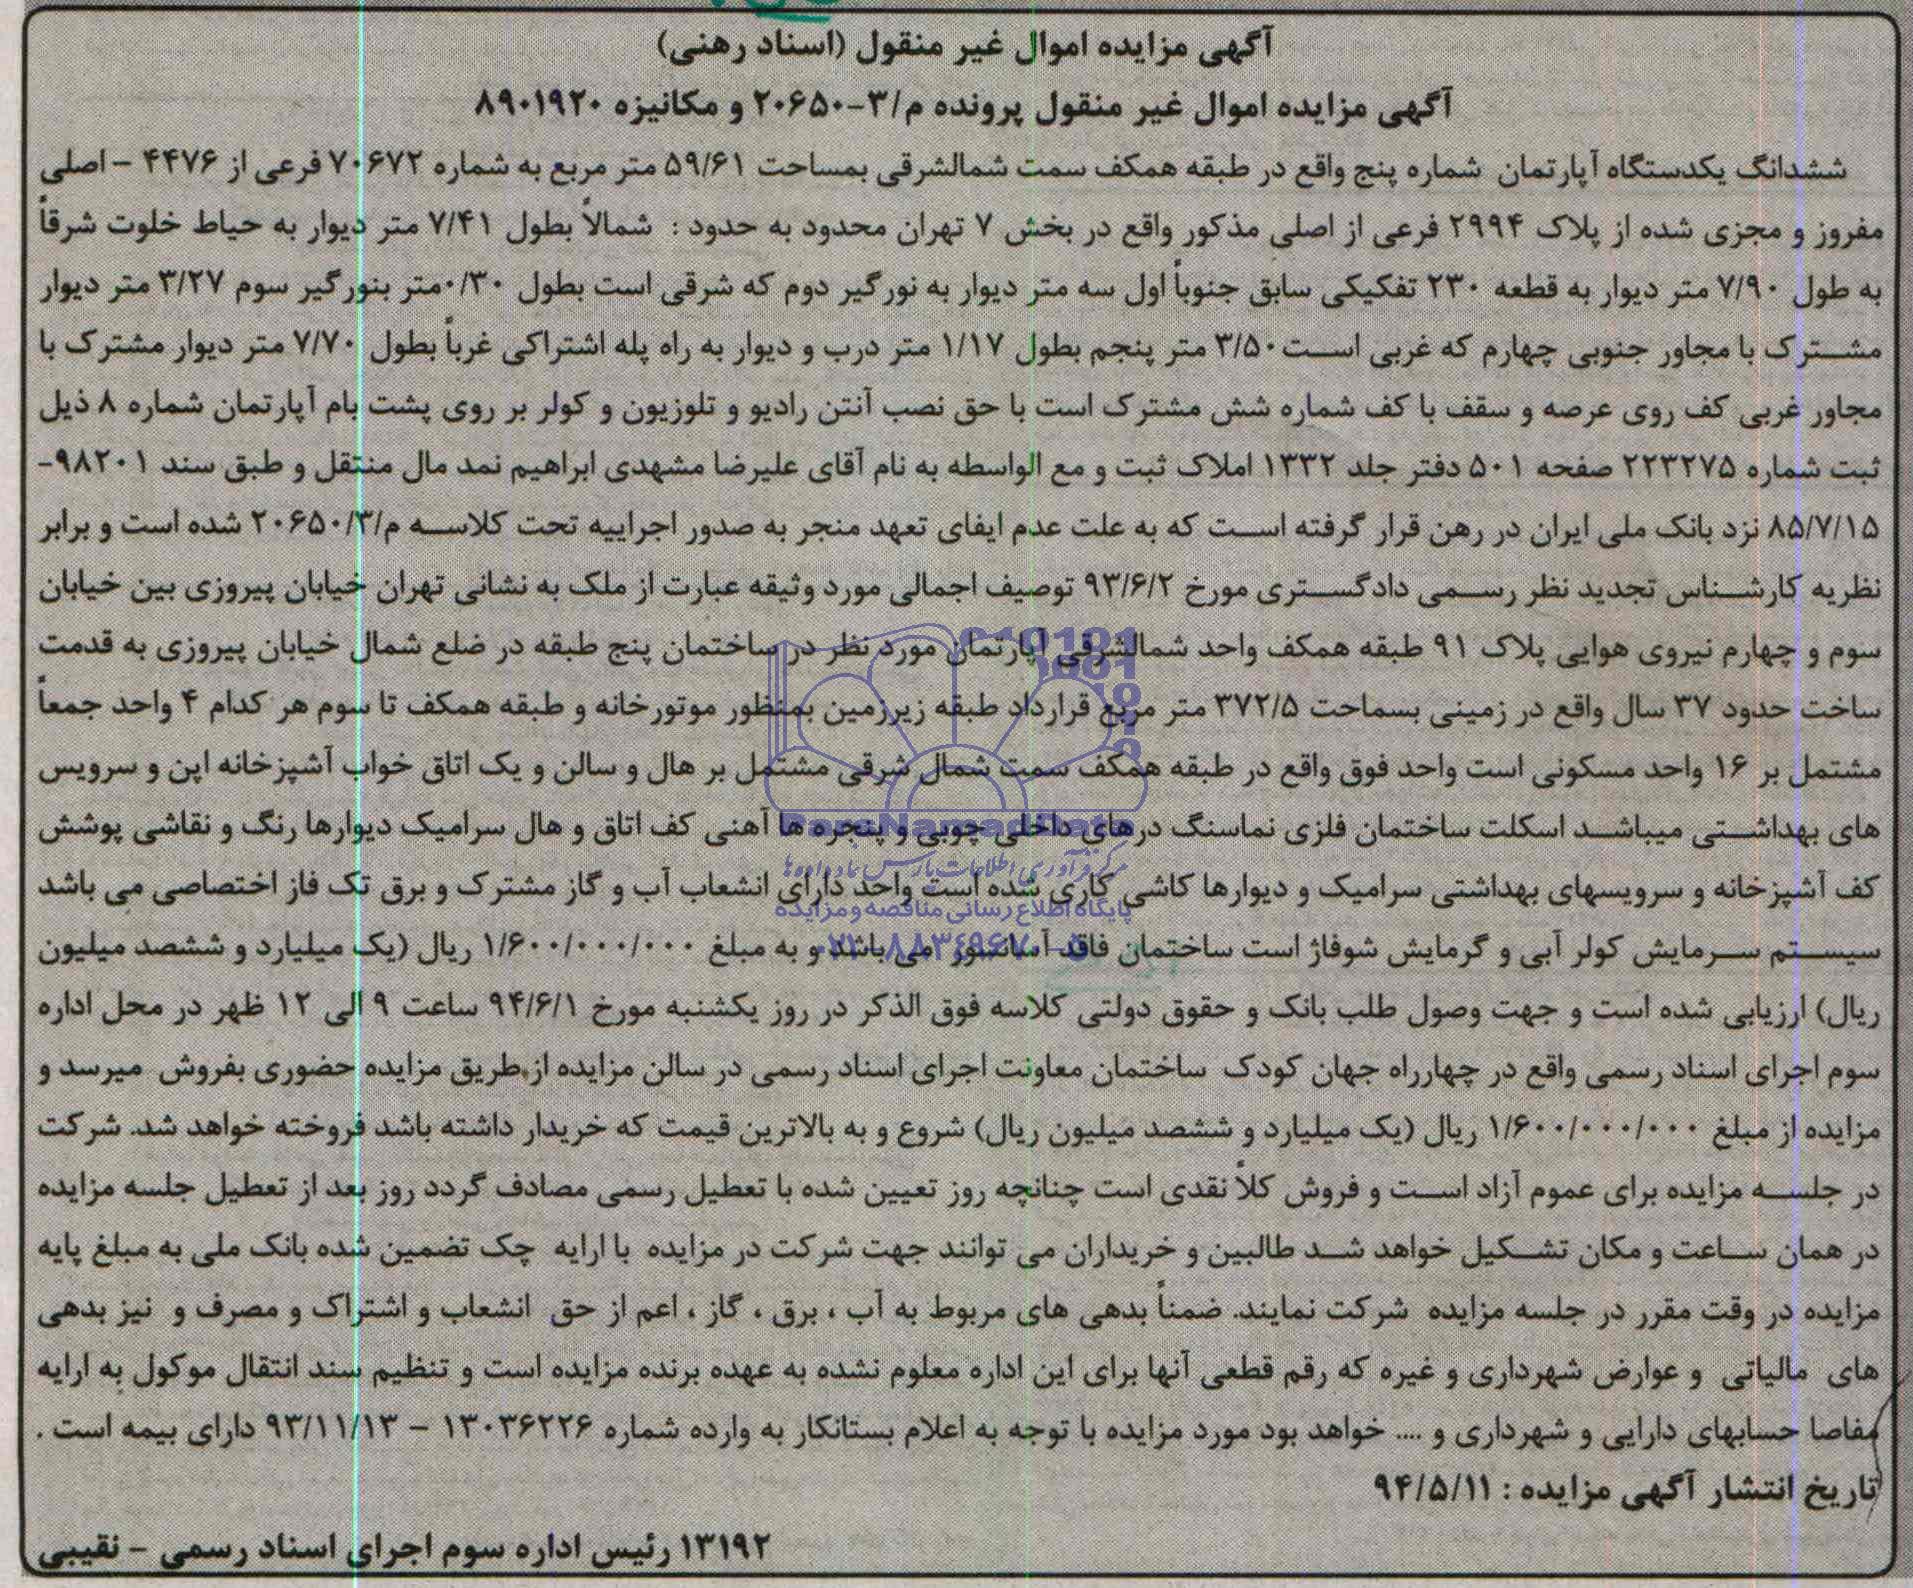 آگهی مزایده اموال غیر منقول (اسناد رهنی)
آگهی مزایده اموال غیر منقول پرونده م/۳-۲۰۶۵۰ و مکانیزه ۸۹۰۱۹۲۰
ششدانگ یکدستگاه آپارتمان شماره پنج واقع در طبقه همکف سمت شمالشرقی بمساحت ۵۹/۶۱ متر مربع به شماره ۷۰۶۷۲ فرعی از ۴۴۷۶ – اصلی
مفروز و مجزی شده از پلاک ۲۹۹۴ فرعی از اصلی مذکور واقع در بخش ۷ تهران محدود به حدود : شمالاً بطول ۷/۴۱ متر دیوار به حیاط خلوت شرقاً
به طول ۷/۹۰ متر دیوار به قطعه ۲۳۰ تفکیکی سابق جنوباً اول سه متر دیوار به نورگیر دوم که شرقی است بطول ۰/۳۰متر بنورگیر سوم ۳/۲۷ متر دیوار
مشترک با مجاور جنوبی چهارم که غربی است۳/۵۰ متر پنجم بطول ۱/۱۷ متر درب و دیوار به راه پله اشتراکی غرباً بطول ۷/۷۰ متر دیوار مشترک با
مجاور غربی کف روی عرصه و سقف با کف شماره شش مشترک است با حق نصب آنتن رادیو و تلوزیون و کولر بر روی پشت بام آپارتمان شماره ۸ ذیل
ثبت شماره ۲۲۳۲۷۵ صفحه ۵۰۱ دفتر جلد ۱۳۳۲ املاک ثبت و مع الواسطه به نام آقای علیرضا مشهدی ابراهیم نمد مال منتقل و طبق سند ۹۸۲۰۱-
۸۵/۷/۱۵ نزد بانک ملی ایران در رهن قرار گرفته است که به علت عدم ایفای تعهد منجر به صدور اجراییه تحت کلاسه م/۲۰۶۵۰/۳ شده است و برابر
نظریه کارشناس تجدید نظر رسمی دادگستری مورخ ۹۳/۶/۲ توصیف اجمالی مورد وثیقه عبارت از ملک به نشانی تهران خیابان پیروزی بین خیابان
سوم و چهارم نیروی هوایی پلاک ۹۱ طبقه همکف واحد شمالشرقی آپارتمان مورد نظر در ساختمان پنج طبقه در ضلع شمال خیابان پیروزی به قدمت
ساخت حدود ۳۷ سال واقع در زمینی بسماحت ۳۷۲/۵ متر مربع قرارداد طبقه زیرزمین بمنظور موتورخانه و طبقه همکف تا سوم هر کدام ۴ واحد جمعاً
مشتمل بر ۱۶ واحد مسکونی است واحد فوق واقع در طبقه همکف سمت شمال شرقی مشتمل بر هال و سالن و یک اتاق خواب آشپزخانه اپن و سرویس
های بهداشتی میباشد اسکلت ساختمان فلزی نماسنگ درهای داخلی چوبی و پنجره ها آهنی کف اتاق و هال سرامیک دیوارها رنگ و نقاشی پوشش
ParsNamadData
مرکز فرآوری اطلاعات پارس نماد داده ها
کف آشپزخانه و سرویسهای بهداشتی سرامیک و دیوارها کاشی کاری شده است واحد دارای انشعاب آب و گاز مشترک و برق تک فاز اختصاصی می باشد
پایگاه اطلاع رسانی مناقصه و مزایده
سیستم سرمایش کولر آبی و گرمایش شوفاژ است ساختمان فاقد آسانسور می باشد و به مبلغ ۱/۶۰۰/۰۰۰/۰۰۰ ریال (یک میلیارد و ششصد میلیون
ریال) ارزیابی شده است و جهت وصول طلب بانک و حقوق دولتی کلاسه فوق الذکر در روز یکشنبه مورخ ۹۴/۶/۱ ساعت ۹ الی ۱۲ ظهر در محل اداره
سوم اجرای اسناد رسمی واقع در چهارراه جهان کودک ساختمان معاونت اجرای اسناد رسمی در سالن مزایده از طریق مزایده حضوری بفروش میرسد و
مزایده از مبلغ ۱/۶۰۰/۰۰۰/۰۰۰ ریال (یک میلیارد و ششصد میلیون ریال) شروع و به بالاترین قیمت که خریدار داشته باشد فروخته خواهد شد. شرکت
در جلسه مزایده برای عموم آزاد است و فروش کلاً نقدی است چنانچه روز تعیین شده با تعطیل رسمی مصادف گردد روز بعد از تعطیل جلسه مزایده
در همان ساعت و مکان تشکیل خواهد شد طالبین و خریداران می توانند جهت شرکت در مزایده با ارایه چک تضمین شده بانک ملی به مبلغ پایه
مزایده در وقت مقرر در جلسه مزایده شرکت نمایند. ضمناً بدهی های مربوط به آب ، برق ، گاز ، اعم از حق انشعاب و اشتراک و مصرف و نیز بدهی
های مالیاتی و عوارض شهرداری و غیره که رقم قطعی آنها برای این اداره معلوم نشده به عهده برنده مزایده است و تنظیم سند انتقال موکول به ارایه
مفاصا حسابهای دارایی و شهرداری و .... خواهد بود مورد مزایده با توجه به اعلام بستانکار به وارده شماره ۱۳۰۳۶۲۲۶ – ۹۳/۱۱/۱۳ دارای بیمه است .
تاریخ انتشار آگهی مزایده : ۹۴/۵/۱۱
۱۳۱۹۲ رئیس اداره سوم اجرای اسناد رسمی – نقیبی